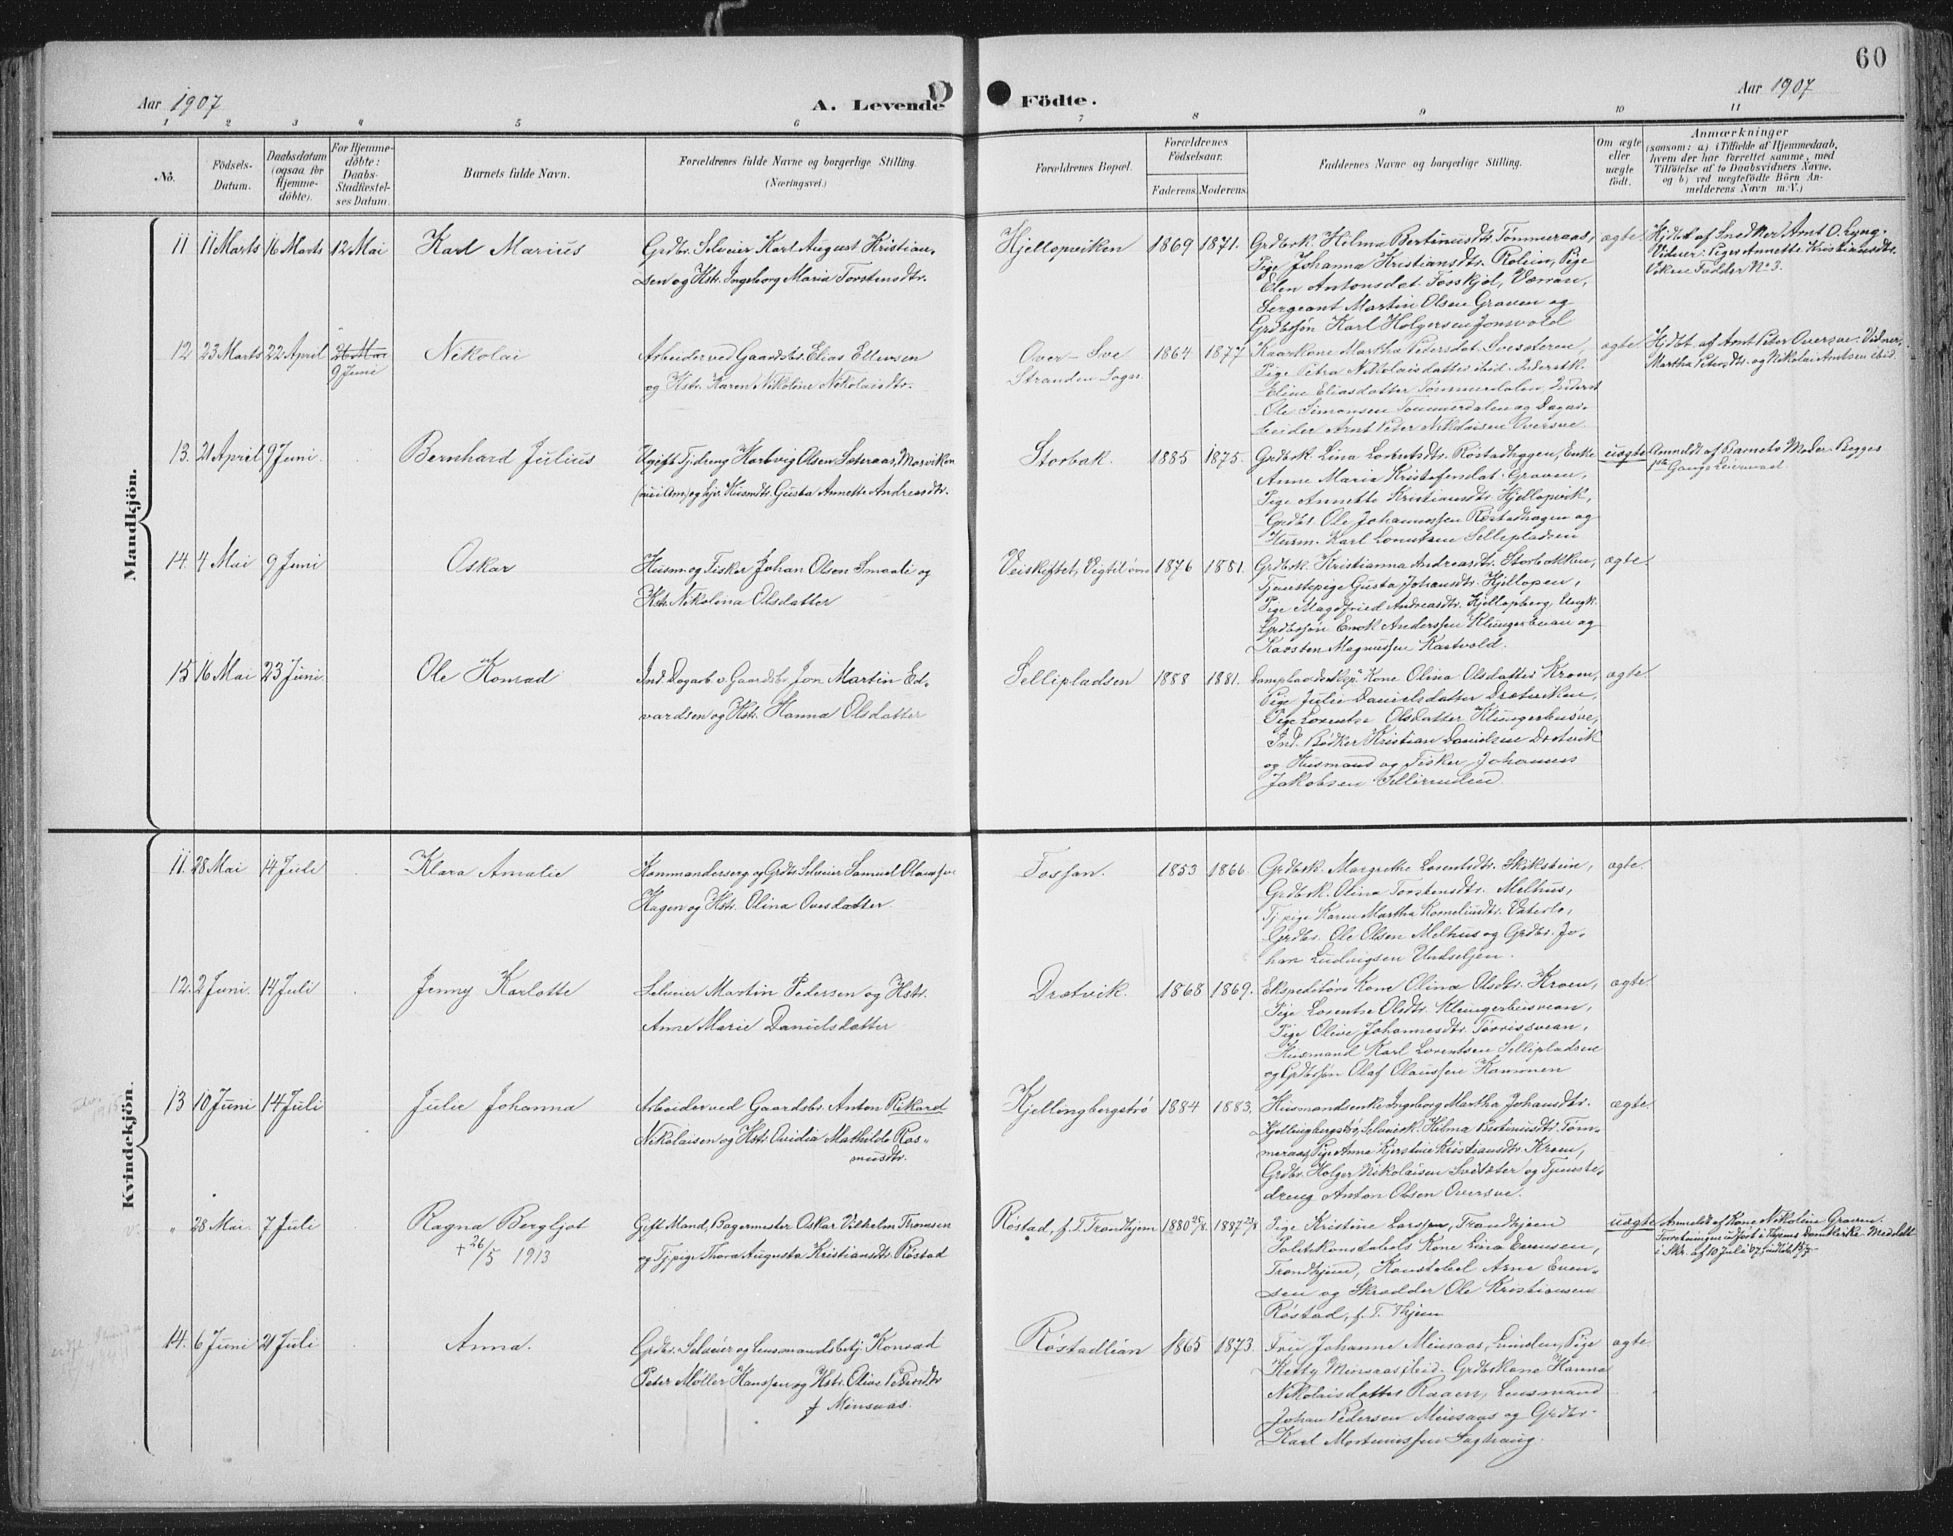 60
Aar 1907
A. Levende Födte.
Aar 1907
1 2 3 4 5 6 7 8 9 10 11
No.
Födsels-Datum.
Daabsdatum (ogsaa for Hjemme-döbte).
For Hjemme-döbte: Daabs-Stadfæstel-ses Datum.
Barnets fulde Navn.
Forældrenes fulde Navne og borgerlige Stilling.
(Næringsvei.)
Forældrenes Bopæl.
Forældrenes Födselsaar.
Faderens. Moderens.
Faddernes Navne og borgerlige Stilling.
Om ægte eller uægte födt.
Anmærkninger
(saasom: a) i Tilfælde af Hjemmedaab,
hvem der har forrettet samme, med
Tilföielse af to Daabsvidners Navne,
og b) ved uægtefödte Börn An-
melderens Navn m. V.)
Mandkjön.
11 11 Marts 16 Marts 12 Mai Karl Marius
Grdbr. Selveier Karl August Kristian-
sen og Hstr. Ingeborg Maria Torstensdtr.
Hjellopviken 1869 1871.
Grdbrk. Hilma Bertinusdtr. Tömmeraas,
Pige Johanna Kristiansdtr. Rolein, Pige
Elen Antonsdat. Fosskjøl, Værran,
Sergeant Martin Olsen Graven og
Grdbssøn Karl Holgersen Jonsvold
ægte
Hjdøbt af Snedker Arnt O. Lyng.
Vidner: Piger Annette Kristiansdtr.
Viken Fadder No 3.
12 23 Marts 22 April 26 Mai Nikolai
9 Juni
Arbeider ved Gaardsbr. Elias Ellevsen
og Hstr. Karen Nikoline Nikolaisdtr.
Over-Sve
Stranden Sogn 1864 1877
Kaarkone Martha Pedersdat. Svesæteren,
Pige Petra Nikolaisdatter ibid. Inderstk.
Eline Eliasdatter Tømmerdalen, Inderst
Ole Simonsen Tømmerdalen og Dagar-
beider Arnt Peter Nikolaisen Oversve.
ægte
Hjdøbt. af Arnt Peter Oversve. Vidner,
Martha Petersdtr. og Nikolai Arntsen ibid.
13. 21 April 9 Juni Bernhard Julius
Ugift Tjdreng Hartvig Olsen Sæteraas, Mosviken
og Hjv. Husmdtr. Gusta Annette Andreasdtr.
Storbak. 1885 1875.
Grdbrk. Lina Lorentsdtr. Røstadhaggen, Enke
Anne Maria Kristofersdat. Graven,
Pige Annette Kristiansdtr. Hjellopvik,
Grdbr. Ole Johannessen Røstadhagen og
Husm. Karl Lorentsen Sellipladsen
uægte
Anmeldt af Barnets Moder. Begges
1ste Gangs Leiermaal
14. 4 Mai 9 Juni Oskar
Husm. og Fisker Johan Olsen Smaali og
Hstr. Nikolina Olsdatter
Veiskiftet, Vigtiløm 1876 1881.
Grdbrk. Kristianna Andreasdtr. Storbakken,
Tjenestepige Gusta Johansdtr. Hjellopen,
Pige Magdfried Andreasdtr. Hjellopberg, Ungk.
Grdbssøn Enok Anderssen Klungerbuan og
Karsten Magnussen Rastvold.
ægte.
15 16 Mai 23 Juni Ole Konrad
Ind. Dagarb. v. Gaardsbr. Jon Martin Ed-
vardsen og Hstr. Hanna Olsdatter
Sellipladsen 1888 1881.
Kone Olina Olsdatter Kroen,
Pige Julie Danielsdatter Drætviken,
Pige Lorentse Olsdatter Klungerbusve,
Ind. Bødker Kristian Danielsen Drætvik
og Husmand og Fisker Johannes
Jakobsen Selliruden
ægte.
Kvindekjön.
11. 28 Mai 14 Juli Klara Amalie
Kommandersg. og Grdbr. Selveier Samuel Olaussen
Hagen og Hstr. Olina Ovesdatter.
Fossan. 1853 1866.
Grdbrk. Margrethe Lorentsdtr. Skikstein,
Grdbrk. Olina Torstensdtr. Melhus,
Tj.pige Karen Martha Korneliusdtr. Vaterlo,
Grdbr. Ole Olsen Melhus og Grdbr. Jo-
han Ludvigsen Undseljen.
ægte.
12. 2 Juni. 14 Juli Jenny Karlotte
Selveier Martin Pedersen og Hstr.
Anne Marie Danielsdatter
Drætvik. 1868 1869.
Ekspeditørs Kone Olina Olsdtr. Kroen,
Pige Lorentse Olsdtr. Klungerbusvean,
Pige Olive Johannesdtr. Tørrissvean,
Husmand Karl Lorentsen Sellipladsen
og Grdbssøn Olaf Olaussen Hammen
ægte.
13 10 Juni 14 Juli Julie Johanna
Arbeider ved Gaardsbr. Anton Rikard
Nikolaisen og Hstr. Ovidia Mathilde Ras-
musdtr.
Kjellingbergstrø 1884 1883.
Husmandsenke Ingeborg Martha Johansdtr.
Kjellingbergstrø, Selveierk. Hilma Bertinusdtr. Tøm-
meraas, Pige Anna Kjerstine Kristiansdtr. Kroen,
Grdbr. Holger Nikolaisen Svesæter og Tjeneste-
dreng Anton Olsen Oversve.
ægte.
" 28 Mai. 7 Juli Ragna Bergljot
+ 26/5 1913
Gift Mand, Bagermester Oskar Vilhelm Thomsen
og Tj.pige Thora Augusta Kristiansdtr. Røstad
Røstad, f. T. Trondhjem 1880 25/8. 1887 29/8
Pige Kristine Larsen, Trondhjem
Politikonstabels Kone Lina Evensen,
Trondhjem, Konstabel Arne Even-
sen og Skrædder Ole Kristiansen
Røstad, f. T. Thjem
uægte
Anmeldt af Kone Nikoline Graven.
Forretningen udført i Thjems Domkirke. Meddelt
i Skr. af 10 Juli 07
14. 6 Juni 21 Juli Anna.
Grdbr. Selveier og Lensmandsbetj. Konrad
Peter Møller Hanssen og Hstr. Olise Pedersdtr.
f. Minsaas.
Røstadlian 1865 1873.
Fru Johanne Minsaas, Lunden, Pige
Ketty Minsaas ibid. Grdbskone Hanna
Nikolaisdatter Raaen, Lensmand
Johan Pedersen Minsaas og Grdbr.
Karl Mortinussen Sagtraug.
ægte.